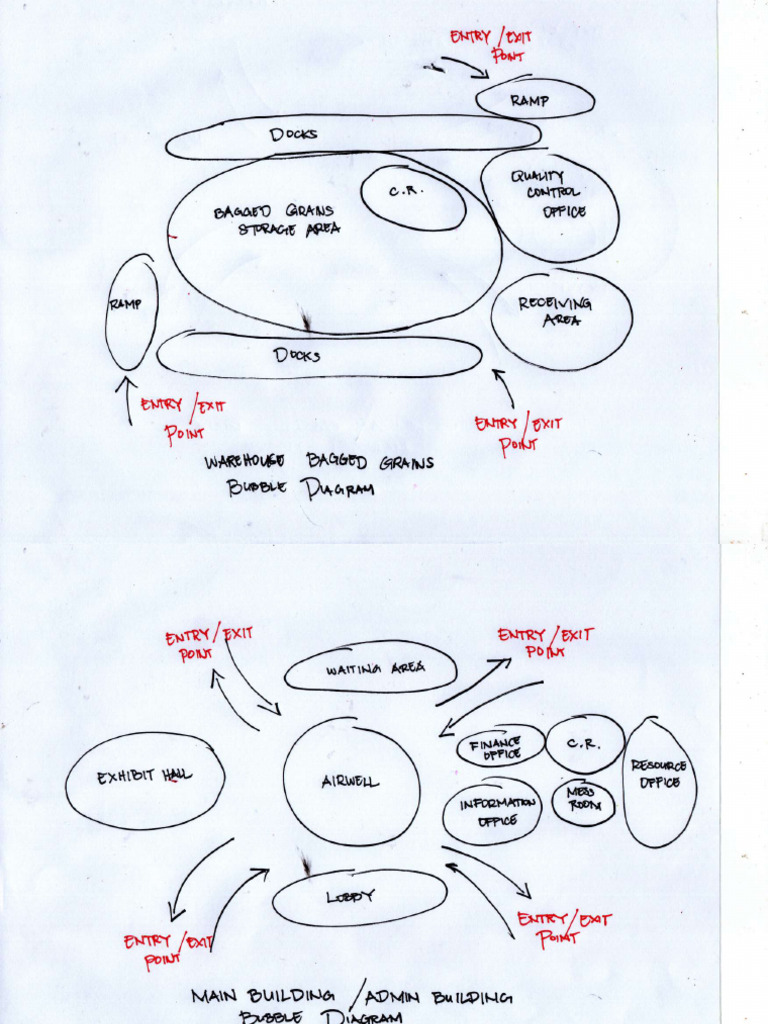 ENTRY/EXIT
POINT
RAMP
DOCKS
QUALITY
CONTROL
OFFICE
C.R.
BAGGED GRAINS
STORAGE AREA
RAMP
RECEIVING
AREA
DOCKS
ENTRY/EXIT
POINT
ENTRY/EXIT
POINT
WAREHOUSE BAGGED GRAINS
BUBBLE DIAGRAM
ENTRY/EXIT
POINT
ENTRY/EXIT
POINT
WAITING AREA
FINANCE
OFFICE
C.R.
RESOURCE
OFFICE
EXHIBIT HALL
AIRWELL
INFORMATION
OFFICE
MESS
ROOM
LOBBY
ENTRY/EXIT
POINT
ENTRY/EXIT
POINT
MAIN BUILDING/ADMIN BUILDING
BUBBLE DIAGRAM